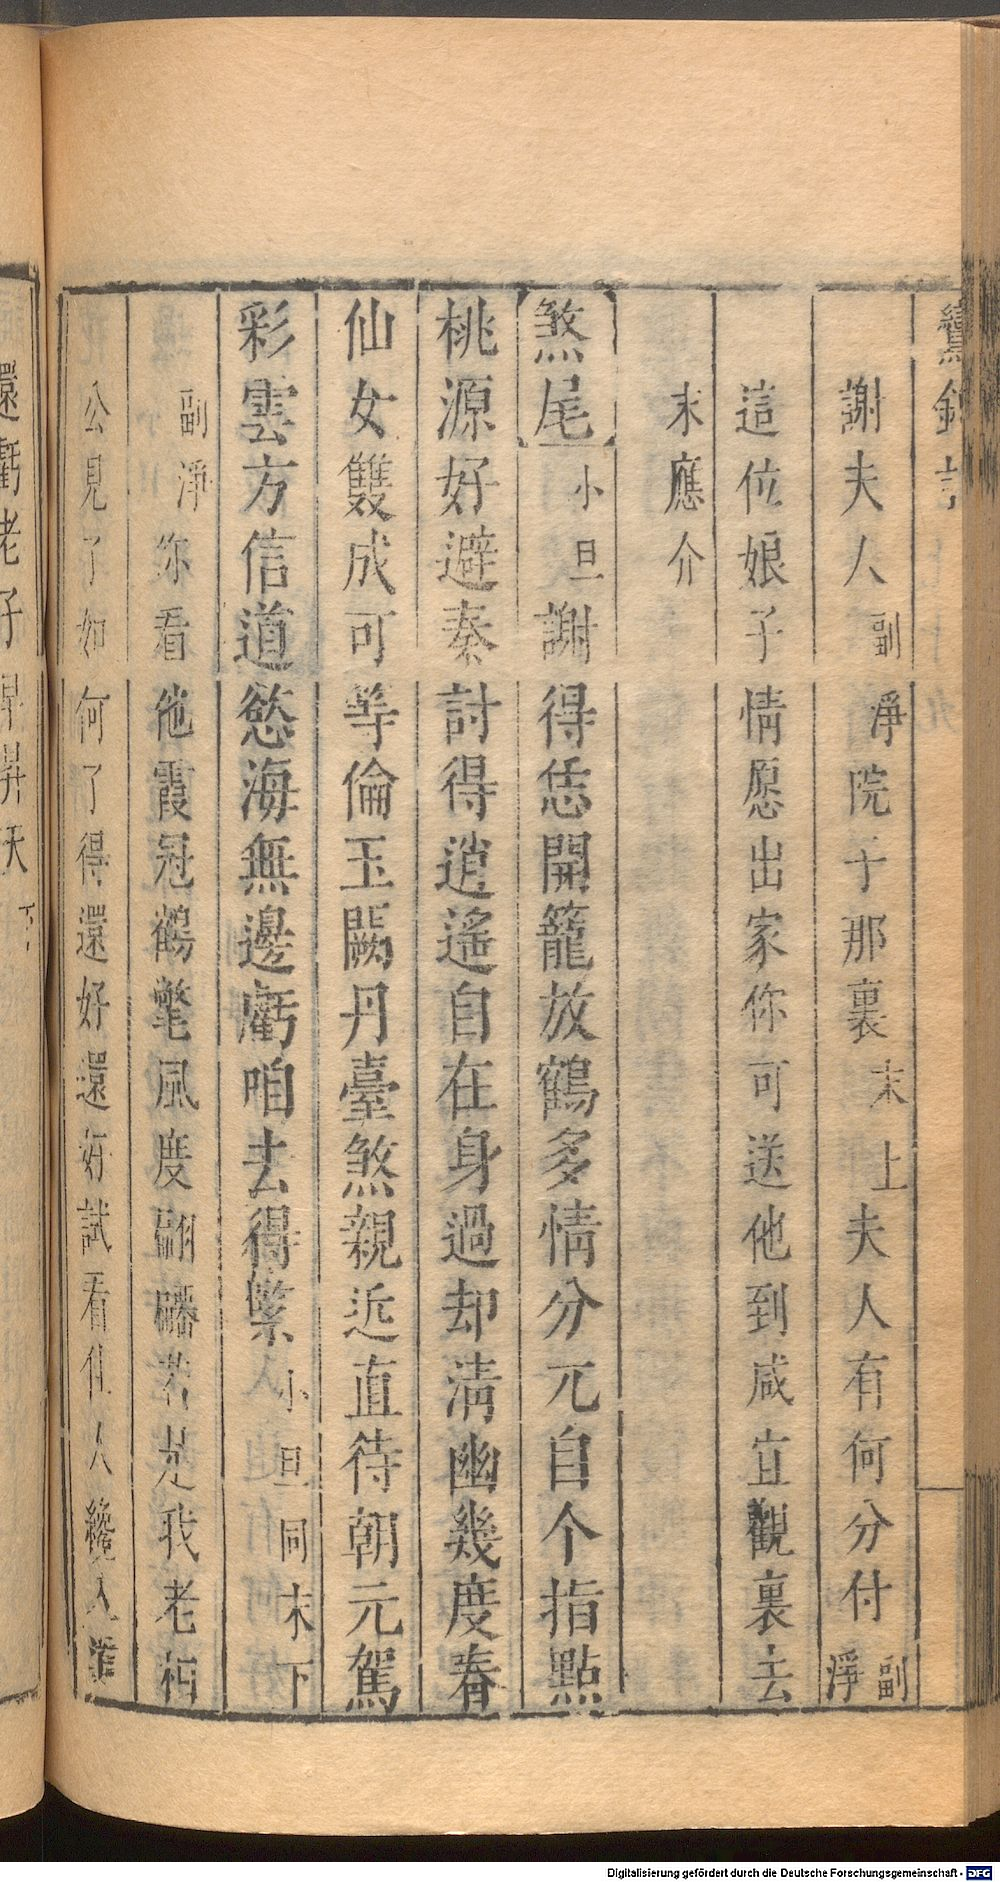 謝夫人副淨院子那裏末上夫人有何分付副淨
這位娘子情愿出家你可送他到咸宜觀裏去
末應介
煞尾小旦謝得恁開籠放鶴多情分兀自个指點
桃源好避秦討得逍遙自在身過却清幽幾度春
仙女雙成可等倫玉闕丹臺煞親近直待朝元駕
彩雲方信道慾海無邊虧咱去得緊小旦同末下
副淨你看他霞冠鶴氅風度翩若是我老相
公見了如何了得還好還好試看佳人纔入
還虧老子早昇天下
Digitalisierung gefördert durch die Deutsche Forschungsgemeinschaft - DFG